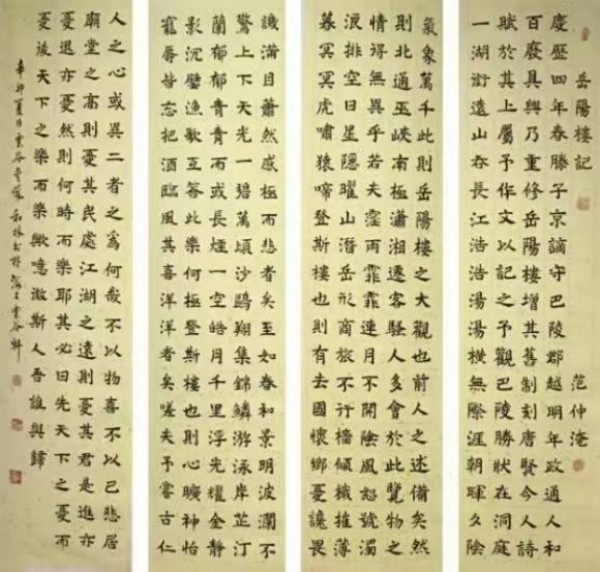 岳陽樓記 范仲淹
慶歷四年春滕子京謫守巴陵郡越明年政通人和
百廢具興乃重修岳陽樓增其舊制刻唐賢今人詩
賦於其上屬予作文以記之予觀巴陵勝狀在洞庭
一湖銜遠山吞長江浩浩湯湯橫無際涯朝暉夕陰
氣象萬千此則岳陽樓之大觀也前人之述備矣然
則北通巫峽南極瀟湘遷客騷人多會於此覽物之
情得無異乎若夫霪雨霏霏連月不開陰風怒號濁
浪排空日星隱曜山潛岳形商旅不行檣傾楫摧薄
暮冥冥虎嘯猿啼登斯樓也則有去國懷鄉憂讒畏
譏滿目蕭然感極而悲者矣至如春和景明波瀾不
驚上下天光一碧萬頃沙鷗翔集錦鱗游泳岸芷汀
蘭郁郁青青而或長煙一空皓月千里浮光耀金靜
影沉璧漁歌互答此樂何極登斯樓也則心曠神怡
寵辱皆忘把酒臨風其喜洋洋者矣嗟夫予嘗古仁
人之心或異二者之為何哉不以物喜不以己悲居
廟堂之高則憂其民處江湖之遠則憂其君是進亦
憂退亦憂然則何時而樂耶其必曰先天下之憂而
憂後天下之樂而樂歟噫微斯人吾誰與歸
辛卯夏月雲谷